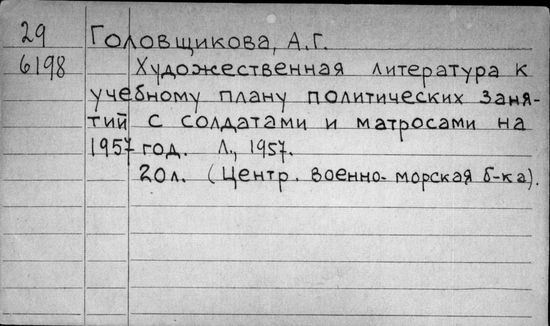 29 Головщикова, А.Г.
6198 Художественная литература к
учебному плану политических заня-
тий с солдатами и матросами на
1957 год. Л., 1957.
20л. (Центр. военно-морская б-ка).